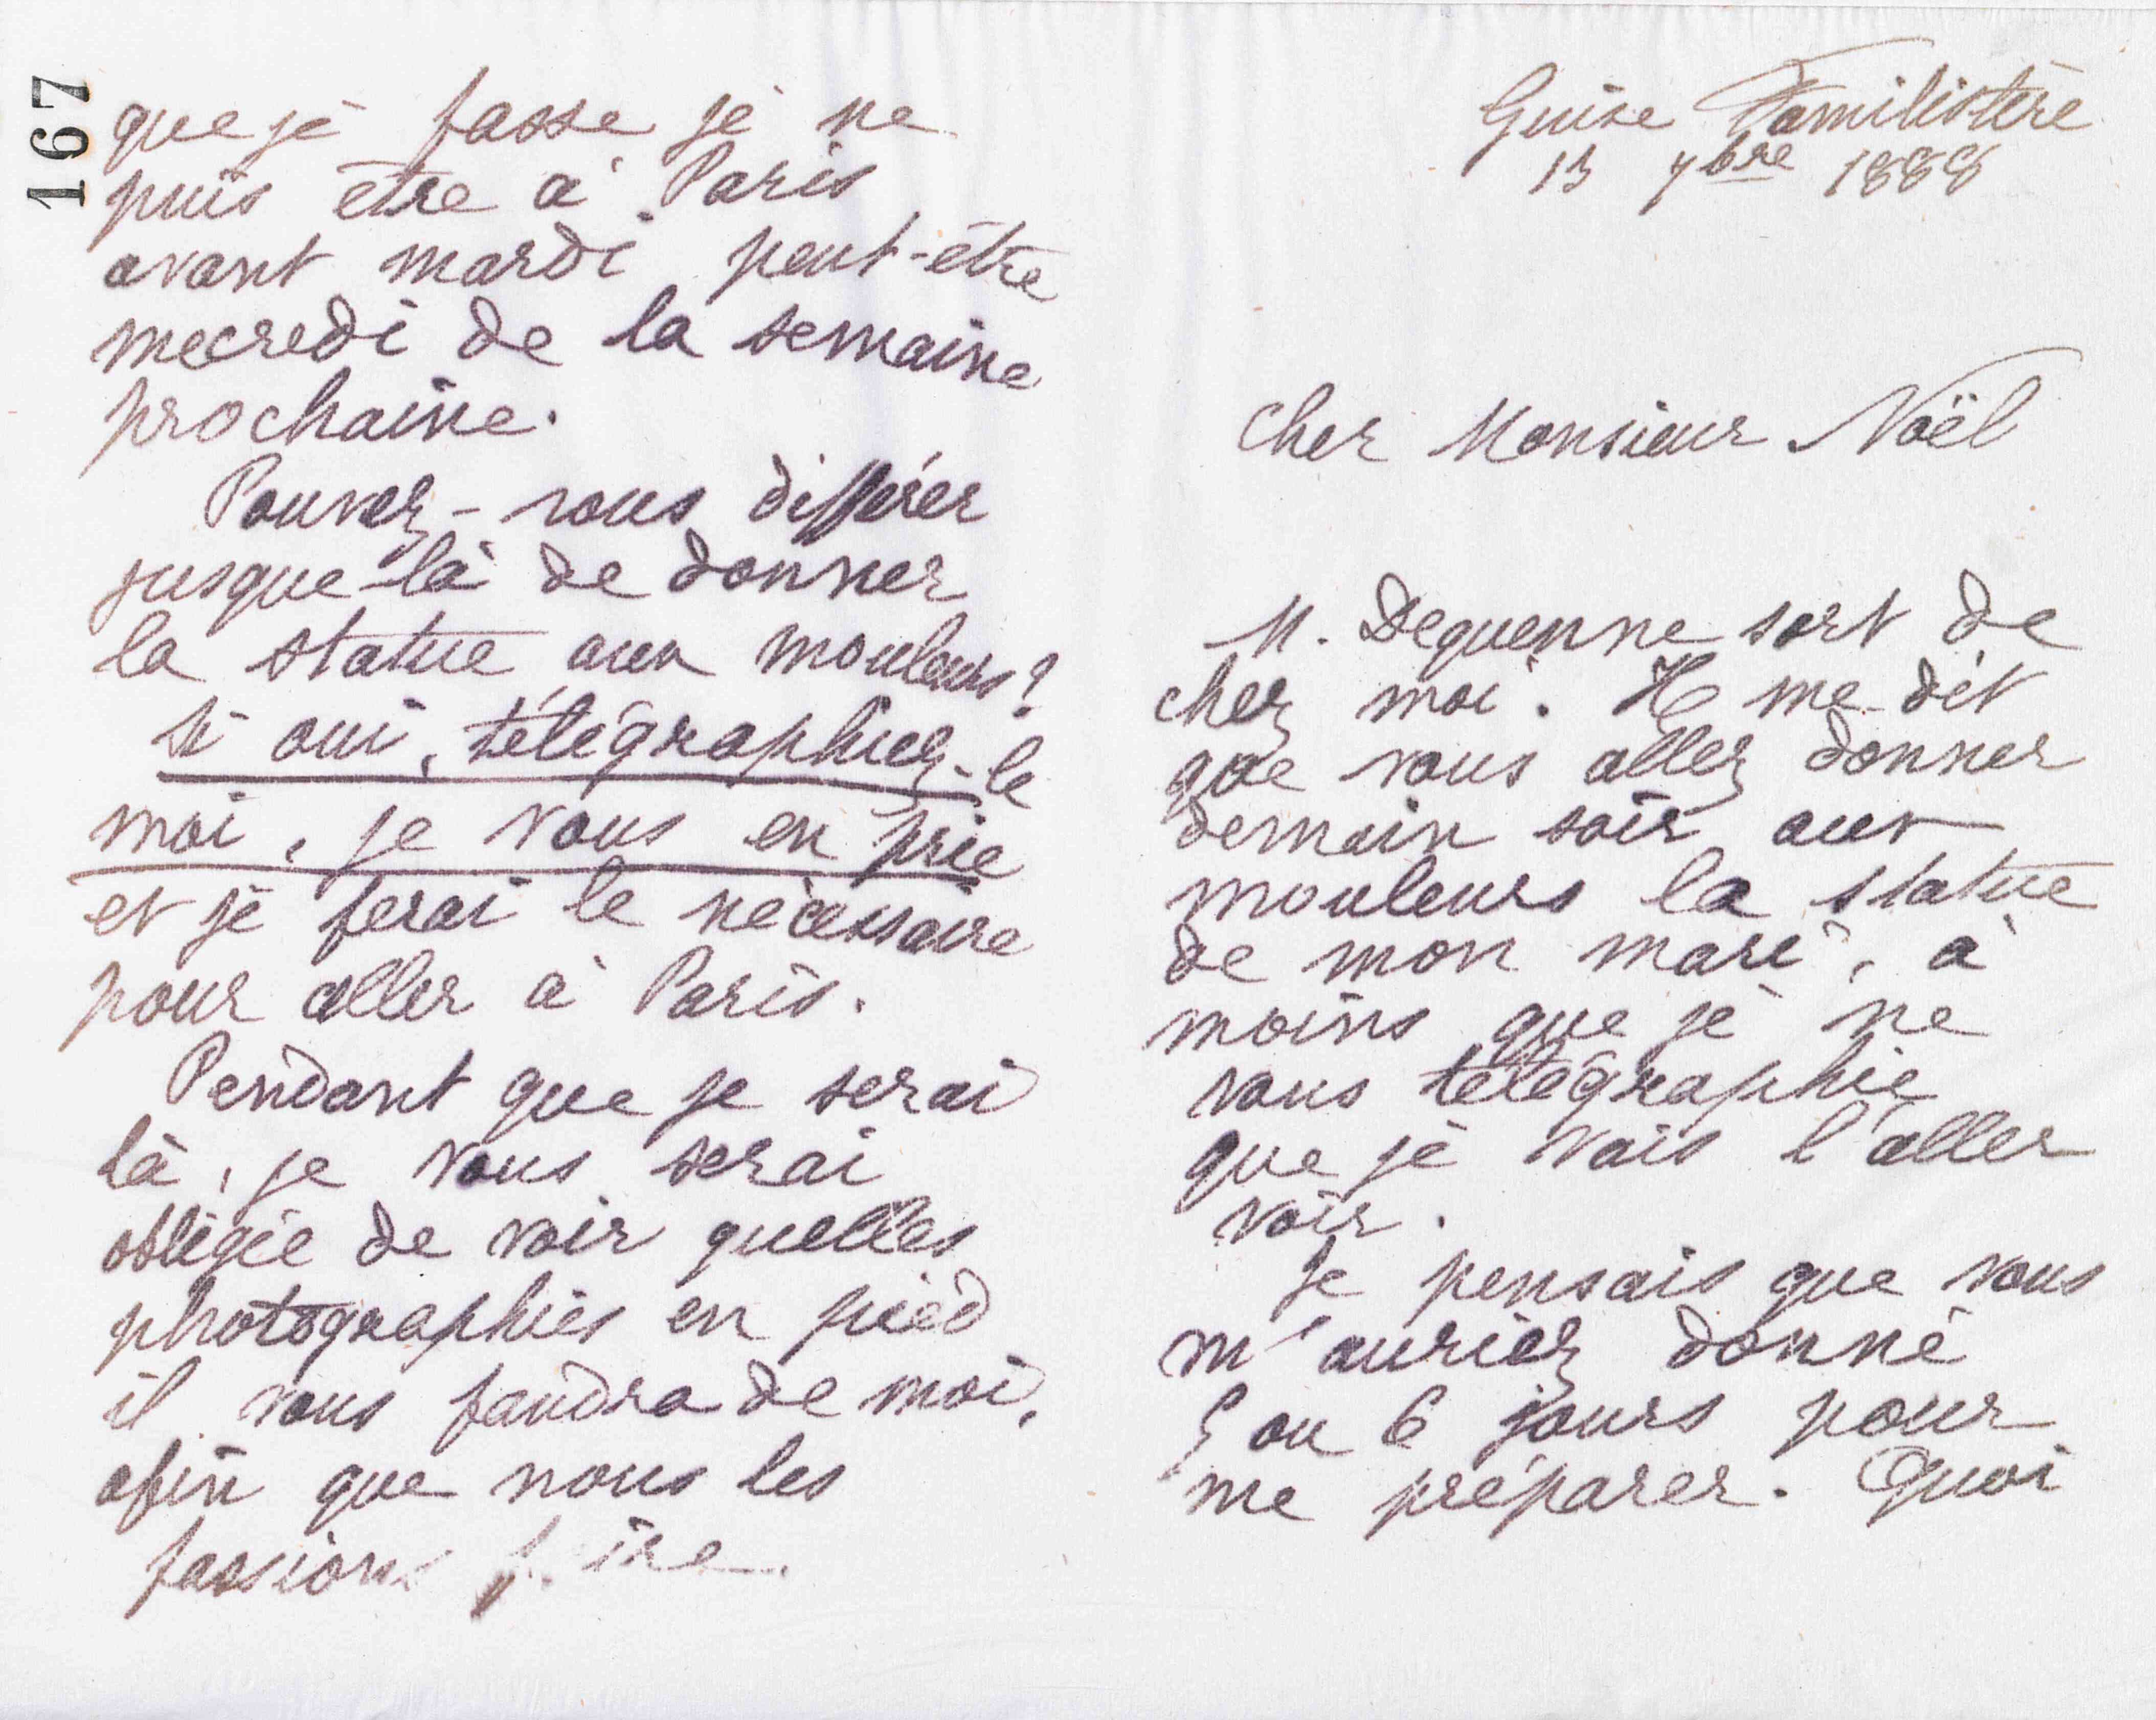 Guise Familistère
13 7bre 1888
Cher Monsieur Noël
M. Dequenne sort de
chez moi. Il me dit
que vous allez donner
demain soir aux
mouleurs la statue
de mon mari, à
moins que je ne
vous télégraphie
que je vais l'aller
voir.
Je pensais que vous
m'auriez donné
5 ou 6 jours pour
me préparer. Quoi
167
que je fasse je ne
puis être à Paris
avant mardi peut-être
mecredi de la semaine
prochaine.
Pouvez-vous différer
jusque-là de donner
la statue aux mouleurs?
Si oui, télégraphiez-le
moi, je vous en prie
et je ferai le nécessaire
pour aller à Paris.
Pendant que je serai
là, je vous serai
obligée de voir quelles
photographies en pied
il vous faudra de moi,
afin que nous les
fassions faire.